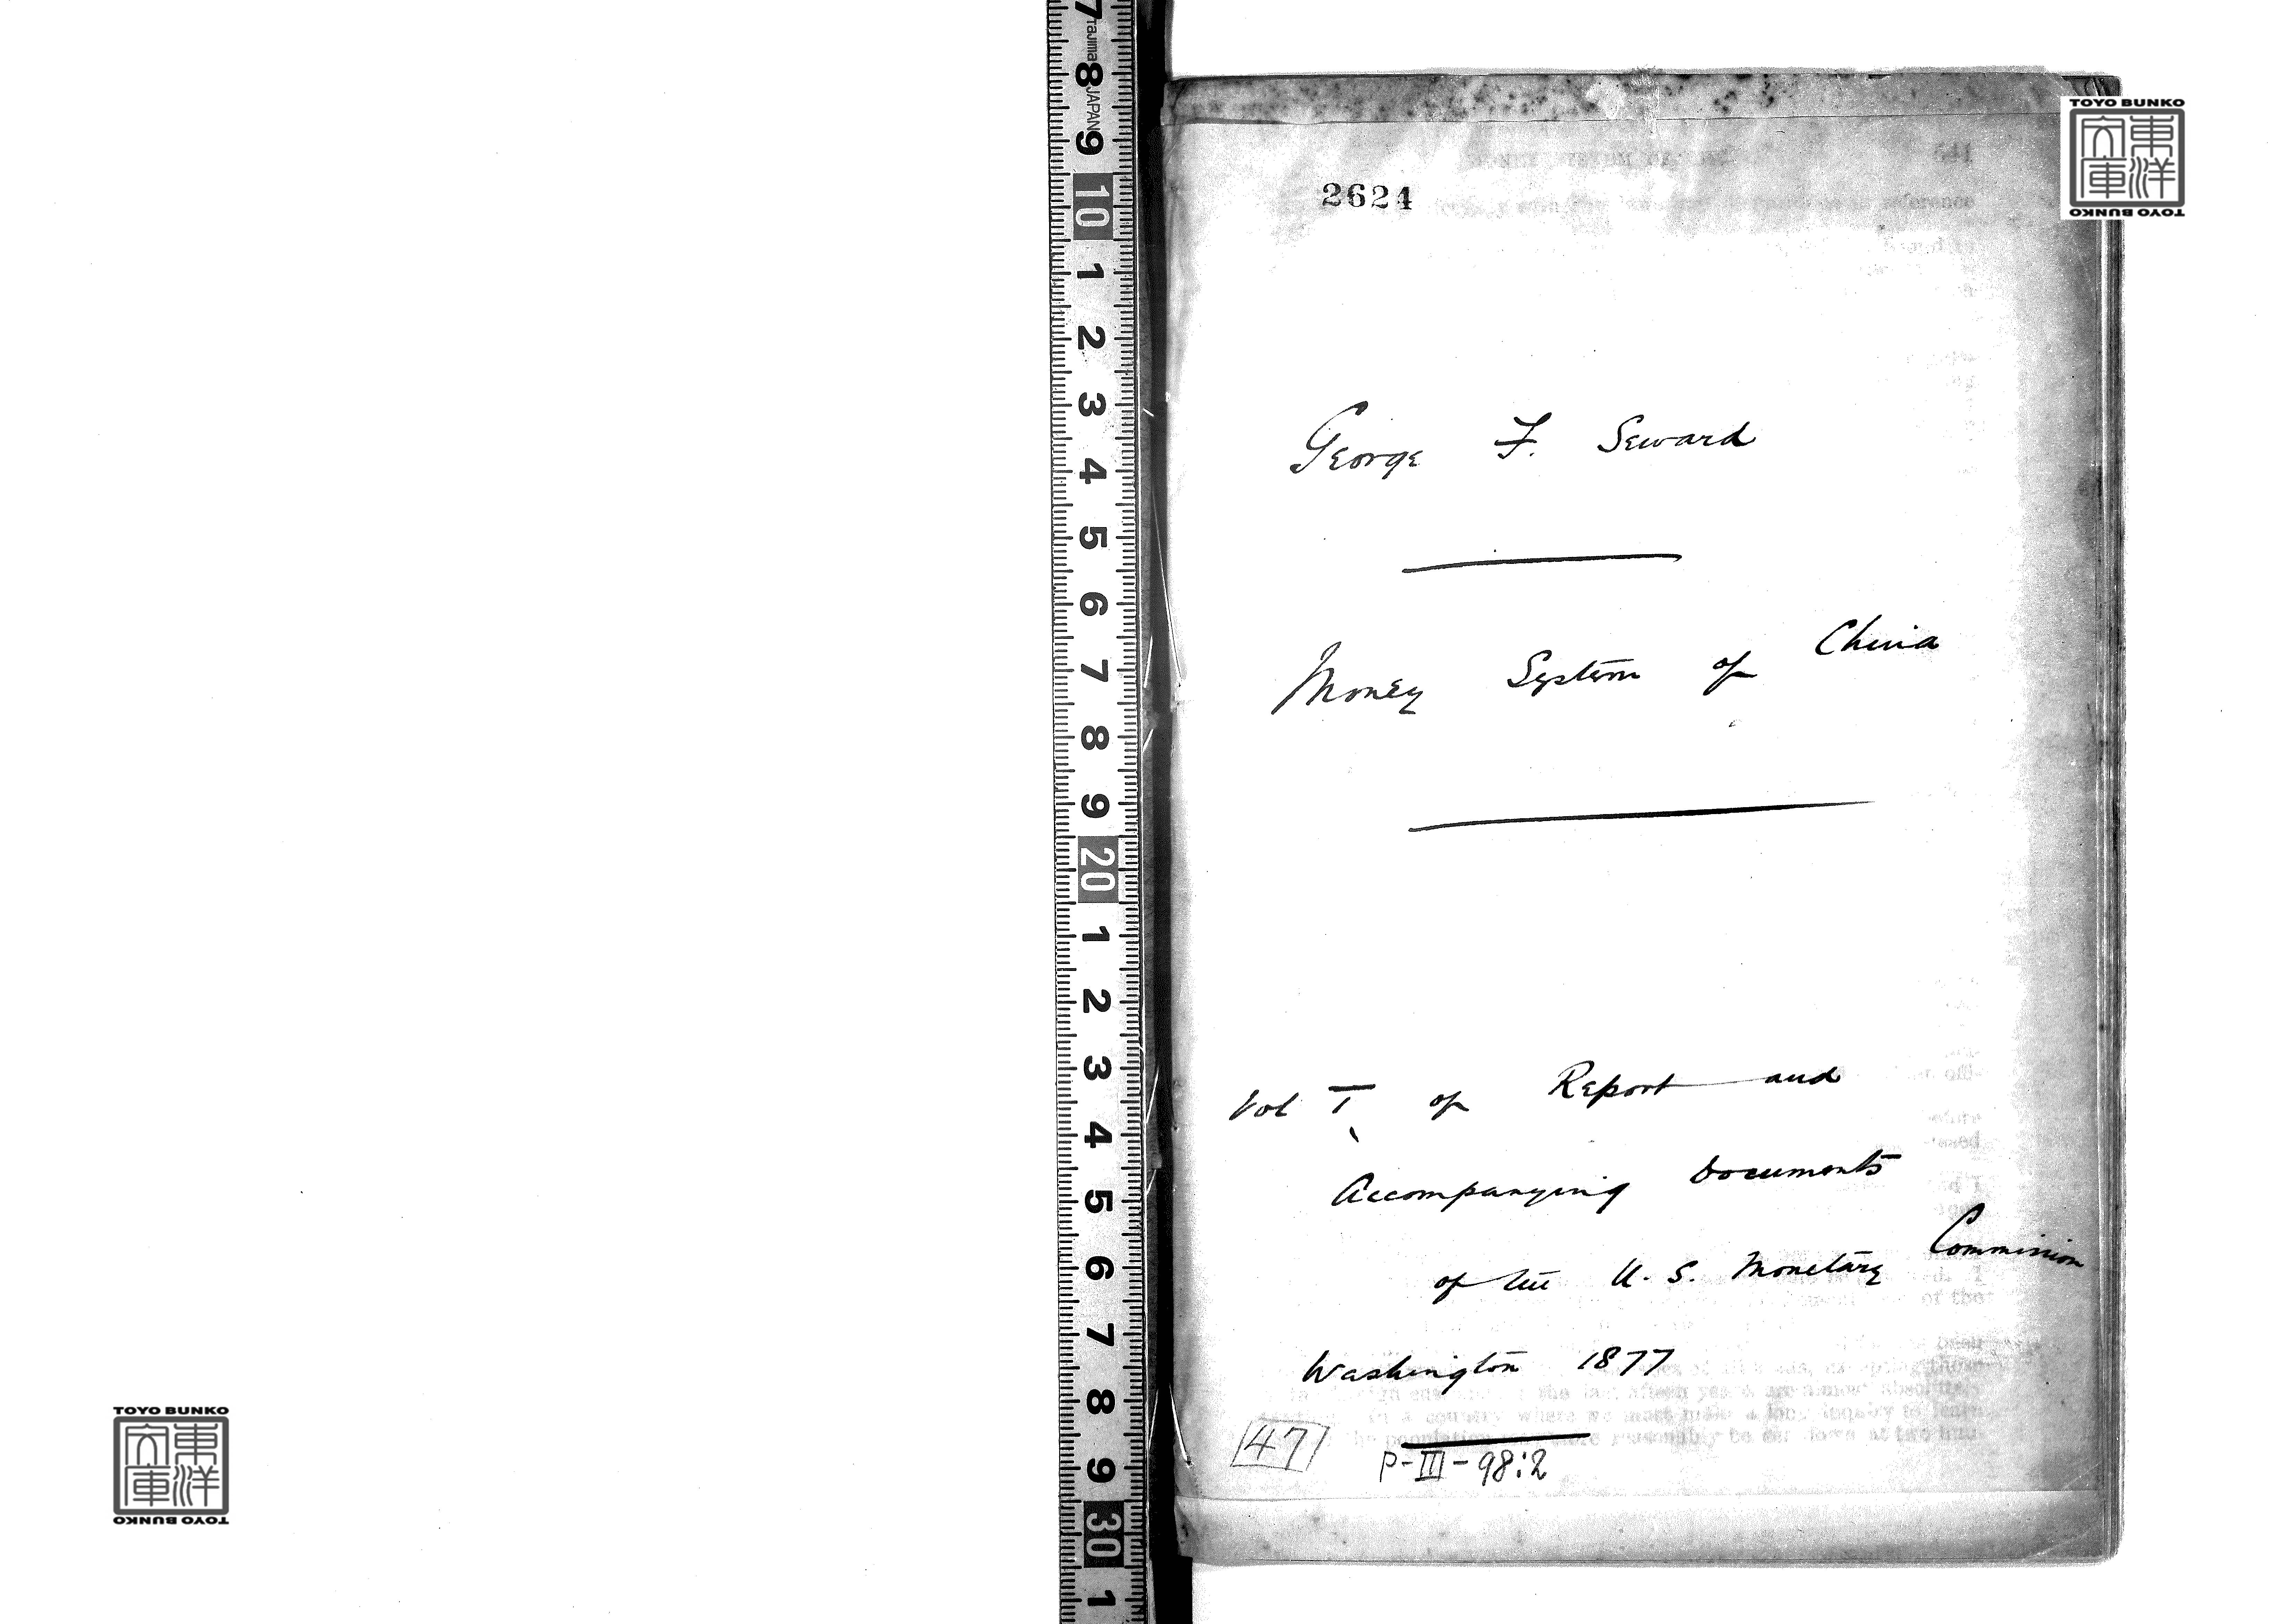 2624
George F. Seward
Money System of China
Vol I of Report and
Accompanying Documents
of the U. S. Monetary Commission
Washington 1877
47
P-III-98:2
7 8 9 10 1 2 3 4 5 6 7 8 9 20 1 2 3 4 5 6 7 8 9 30 1
Tajima JAPAN
TOYO BUNKO
東洋文庫
TOYO BUNKO
TOYO BUNKO
東洋文庫
TOYO BUNKO